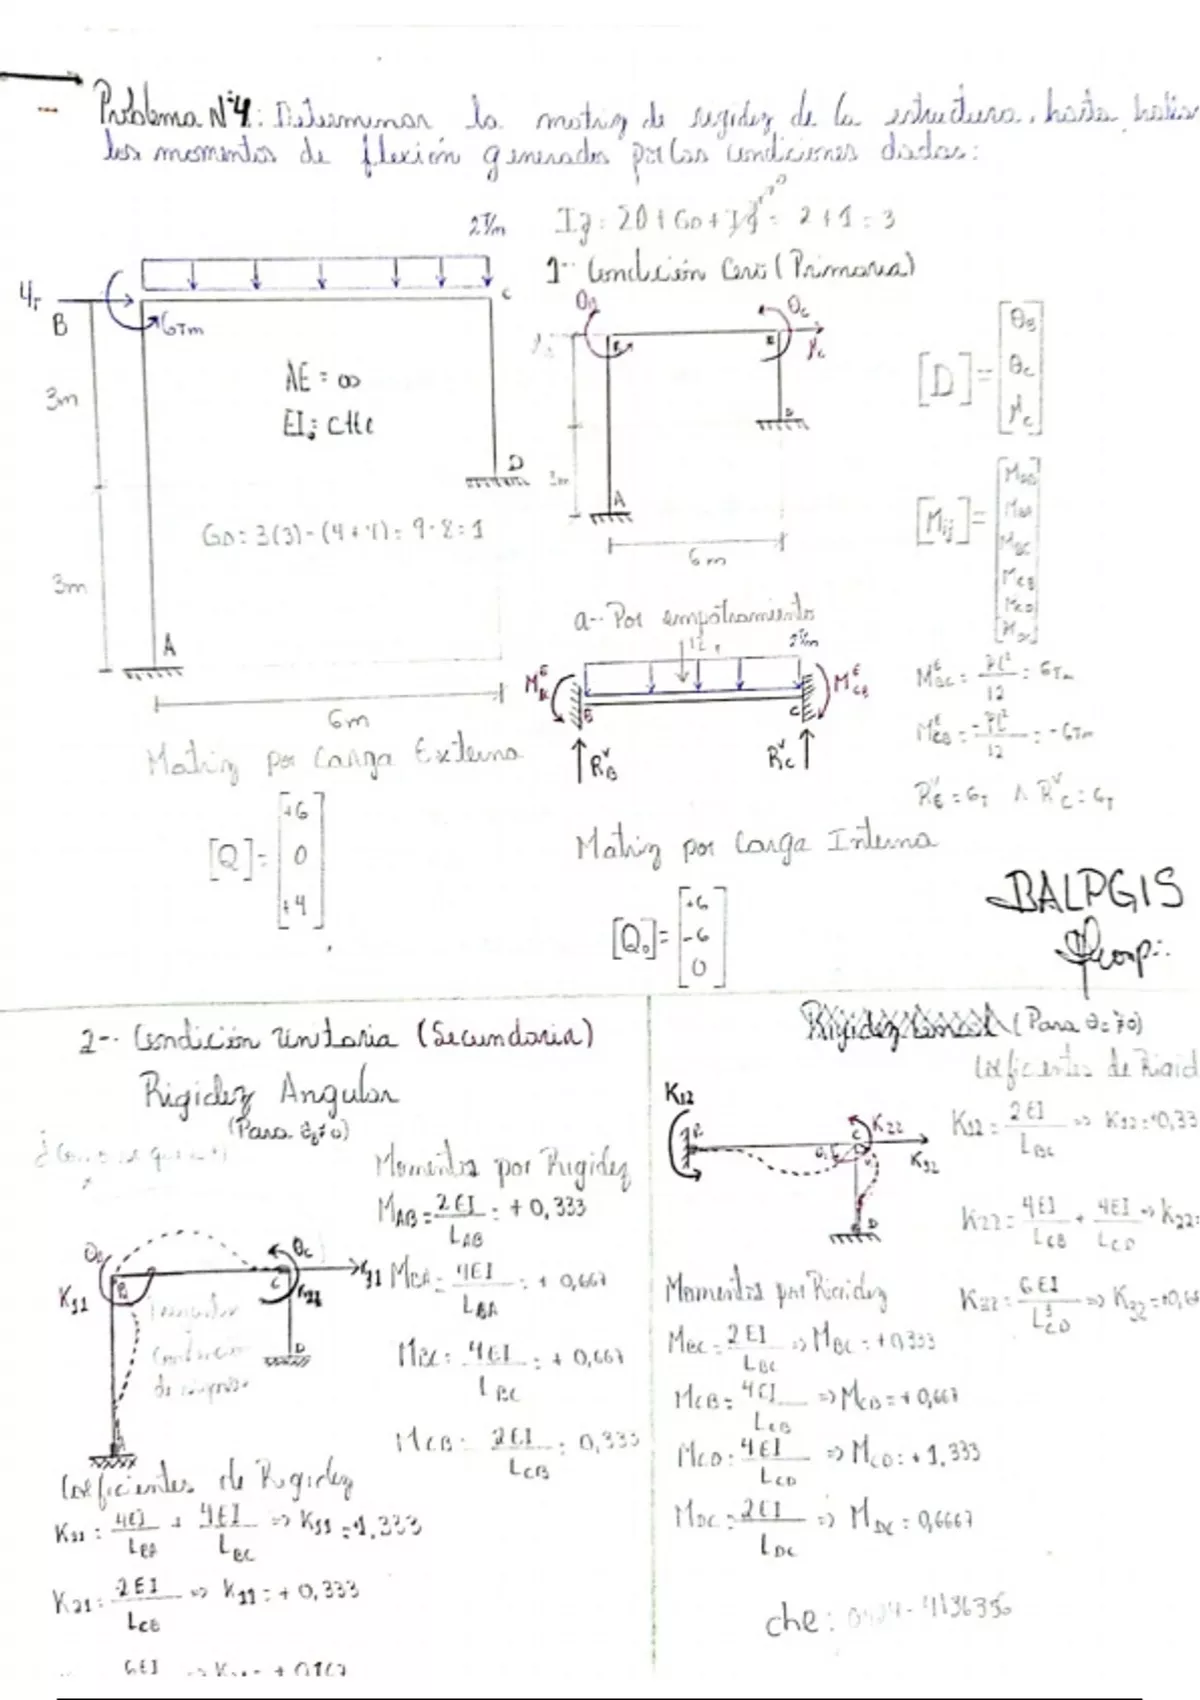 Problema Nº4: Determinar la matriz de rigidez de la estructura, hasta hallar
los momentos de flexión generados por las condiciones dadas:
2T/m
Ig: 20 + GD + = 2 + 1 = 3
1-- Condición Cero (Primaria)
4T
B
6Tm
C
AE = ∞
EI: cte
3m
D
GD = 3(3) - (4+4) = 9 - 8 = 1
3m
A
6m
θc
B
D
A
6m
[D] =
θB
θc
μc
[Mij] =
MAB
MBA
MBC
MCB
MCD
MDC
a-- Por empotramiento
2T/m
12T
MEBC
MECB
B
C
RVB
RVC
MEBC = PL²/12 = 6Tm
MECB = -PL²/12 = -6Tm
RVB = 6T ∧ RVC = 6T
Matriz por Carga Externa
[Q] =
+6
0
+4
Matriz por Carga Interna
[Q0] =
+6
-6
0
BALPGIS
Group..
2-- Condición Unitaria (Secundaria)
Rigidez Angular
(Para θB≠0)
Momentos por Rigidez
MAB = 2EI/LAB = +0,333
MBA = 4EI/LBA = +0,667
MBC = 4EI/LBC = +0,667
MCB = 2EI/LCB = 0,333
θB
θc
K11
B
C
D
Coeficientes de Rigidez
K11 = 4EI/LBA + 4EI/LBC => K11 = 1.333
K21 = 2EI/LCB => K11 = +0,333
6EI
Rigidez Lineal (Para θc≠0)
Coeficientes de Rigid
K12
K22
K32
C
D
K12 = 2EI/LBC => K12 = +0,33
K22 = 4EI/LCB + 4EI/LCD => K22 =
K32 = 6EI/L²CD => K32 = +0,6
Momentos por Rigidez
MBC = 2EI/LBC => MBC = +0,333
MCB = 4EI/LCB => MCB = +0,667
MCD = 4EI/LCD => MCD = +1,333
MDC = 2EI/LDC => MDC = 0,6667
che: 0424-4136356